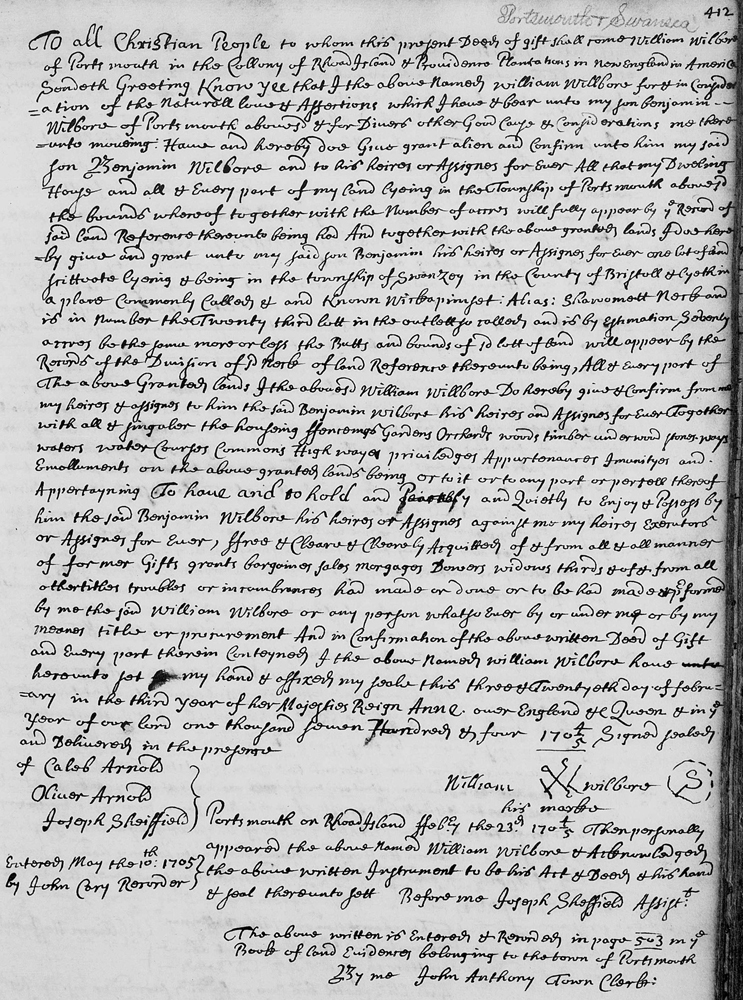 Portsmouth & Swansea 412
TO all Christian People to whom this present Deed of gift shall come William Wilbore
of Portsmouth in the Collony of Rhoad Island & Providence Plantations in New England in America
Sendeth Greeting Know yee that I the above Named William Willbore for & in Consider
=ation of the Naturall love & Affections which I have & bear unto my son Benjamin --
Wilbore of Portsmouth abovesd & for Divers other Good Cause & Considerations me there
=unto moveing: Have and hereby doe Give grant alien and Confirm unto him my said
son Benjamin Wilbore and to his heires or Assignes for Ever All that my Dweling
House and all & Every part of my land lyeing in the Township of Portsmouth abovesd
the bounds whereof together with the Number of accres will fully appear by ye Record of
said land Reference thereunto being had And together with the above granted lands I doe here
=by give and grant unto my said son Benjamin his heires or Assignes for Ever one lot of land
scittuate lyeing & being in the township of Swanzey in the County of Bristoll & lyeth in
a place Commonly Called & and Known Wickapimset: Alias: Shawomett Neck and
is in Number the Twenty third lott in the outlett so called and is by Estimation Seventy
accres be the same more or less the Butts and bounds of sd lott of land will appear by the
Records of the Division of sd Neck of land Reference thereunto being, All & Every part of
The above Granted lands I the abovesd William Willbore Do hereby give & Confirm from me
my heires & assignes to him the said Benjamin Wilbore his heires and Assignes for Ever Together
with all & singuler the houseing ffenceings Gardens Orchards woods timber underwood stones ways
waters water Courses Commons High ways priviledges Appurtenances Imunityes and
Emolluments on the above granted lands being or to it or to any part or percell thereof
Appertayning To have and to hold and Peacebly and Quietly to Enjoy & Possess by
him the said Benjamin Wilbore his heires or Assignes against me my heires Executors
or Assignes for Ever, ffree & Cleare & Clearely Acquitted of & from all & all manner
of former Gifts grants bargaines sales Morgages Dowers widows thirds & of & from all
other titles troubles or incumbrances had made or done or to be had made & pformed
by me the said William Wilbore or any person whatso Ever by or under me or by my
meanes title or procurement And in Confirmation of the above written Deed of Gift
and Every part therein Conteyned I the above Named William Wilbore have
hereunto set my hand & affixed my seale this three & Twentyeth day of febru=
=ary in the third year of her Majesties Reign Anne over England &c Queen & in ye
year of our lord one thousand seven Hundred & four 170 4/5 Signed sealed
and Delivered in the presence
of Caleb Arnold
Oliver Arnold
Joseph Sheiffield
William X Wilbore S
his marke
Portsmouth on Rhoad Island ffeby the 23d 170 4/5 Then personally
appeared the above Named William Wilbore & Acknowledged
the above written Instrument to be his Act & Deed & his hand
& seal thereunto sett Before me Joseph Sheffield Assistt
Entered May the 10th: 1705
by John Cary Recorder
The above written is Entered & Recorded in page 503 in ye
Book of land Evidences belonging to the town of Portsmouth
By me John Anthony Town Clerk: